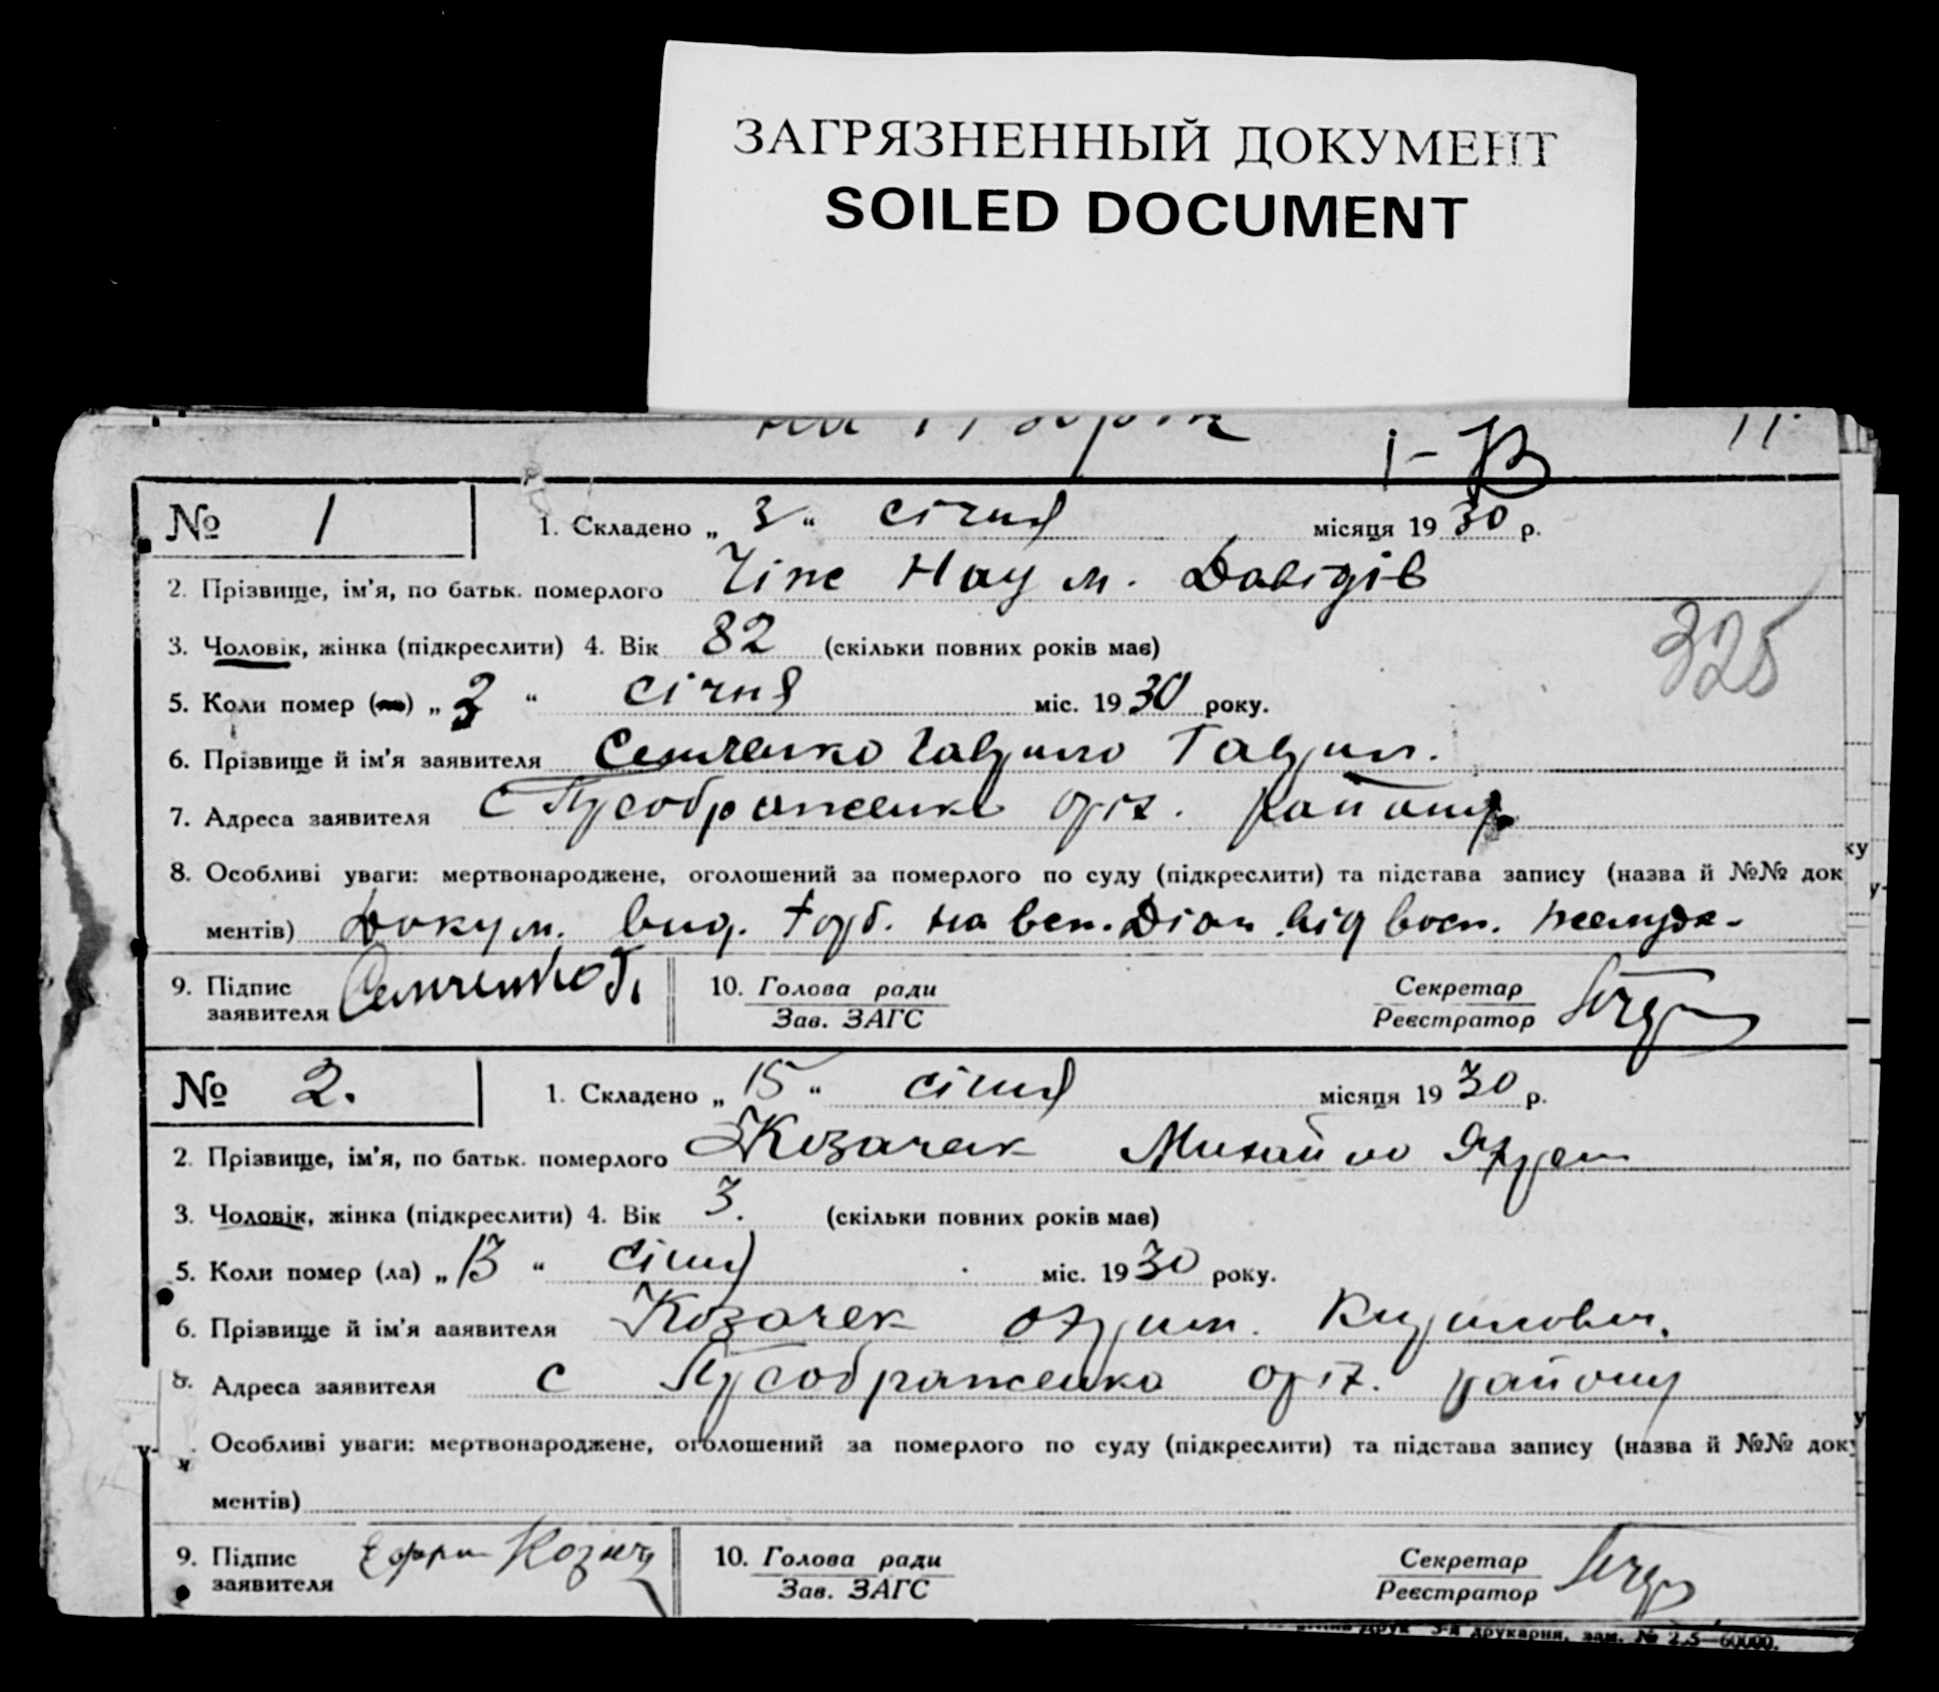 ЗАГРЯЗНЕННЫЙ ДОКУМЕНТ
SOILED DOCUMENT
1-В 11
№ 1 1. Складено „ 3 “ січня місяця 1930 р.
2. Прізвище, ім'я, по батьк. померлого Наум Давидів
3. Чоловік, жінка (підкреслити) 4. Вік 82 (скільки повних років має)
325
5. Коли помер „ 3 “ січня міс. 1930 року.
6. Прізвище й ім'я заявителя Семченко Гаврило Гаврил.
7. Адреса заявителя с району
8. Особливі уваги: мертвонароджене, оголошений за померлого по суду (підкреслити) та підстава запису (назва й №№ док
ментів) Докум. вид. на від восп.
9. Підпис заявителя Семченко Г. 10. Голова ради Зав. ЗАГС Секретар Реєстратор
№ 2. 1. Складено „ 15 “ січня місяця 1930 р.
2. Прізвище, ім'я, по батьк. померлого Козачек Михайло
3. Чоловік, жінка (підкреслити) 4. Вік 3. (скільки повних років має)
5. Коли помер (ла) „ 13 “ січня міс. 1930 року.
6. Прізвище й ім'я заявителя Козачек
8. Адреса заявителя с району
Особливі уваги: мертвонароджене, оголошений за померлого по суду (підкреслити) та підстава запису (назва й №№ доку
ментів)
9. Підпис заявителя 10. Голова ради Зав. ЗАГС Секретар Реєстратор
друкарня, зам. № 2,5—60000.